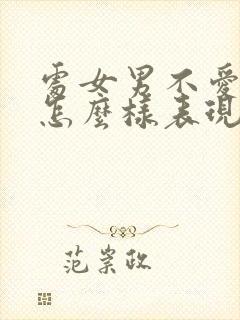 處女男不愛
怎麼樣表現
范崇政